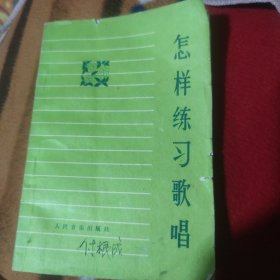 怎样练习歌唱
人民音乐出版社